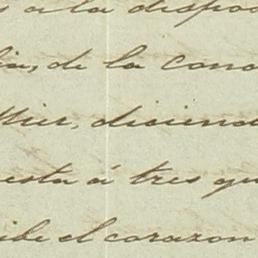 a la dispo
lia, de la cono
Mier, diciend
esta á tres qu
ibe el corazon